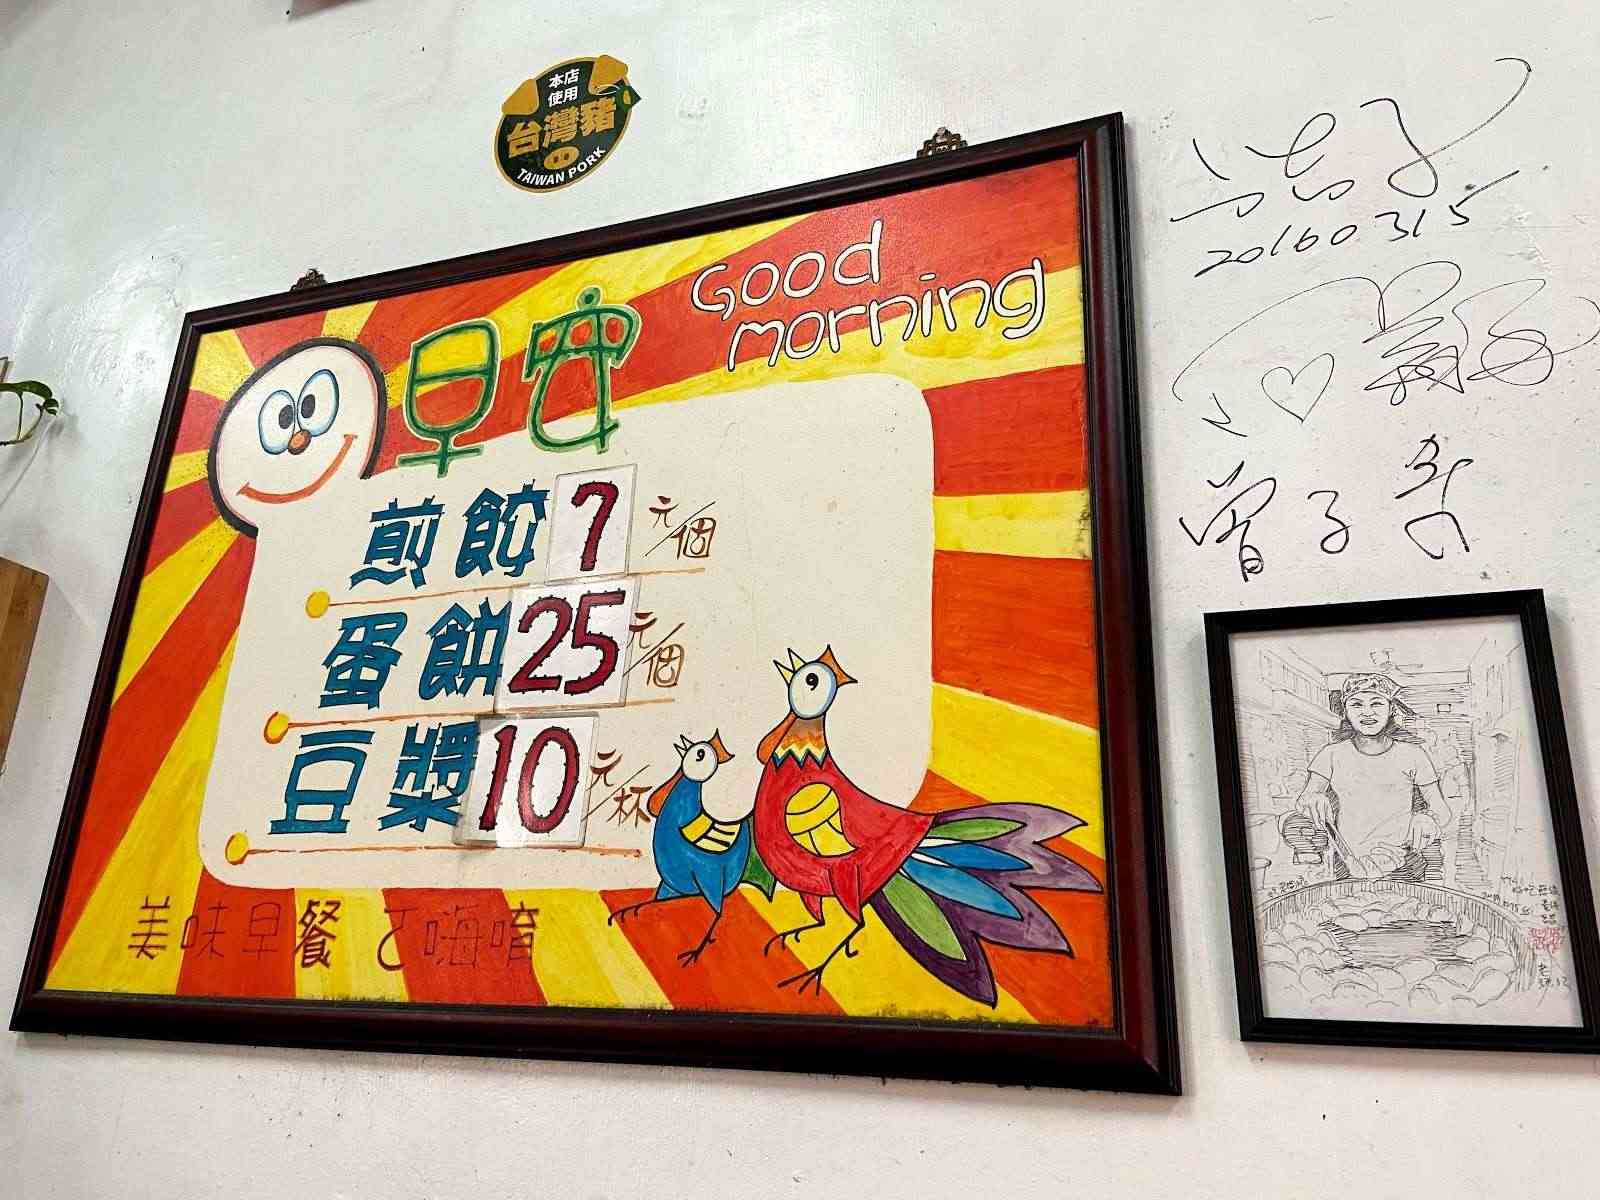 本店
使用
台灣豬
TAIWAN PORK
早安
Good
morning
煎餃7元/個
蛋餅25元/個
豆漿10元/杯
美味早餐 ㄛ嗨唷
20160315
曾子奇